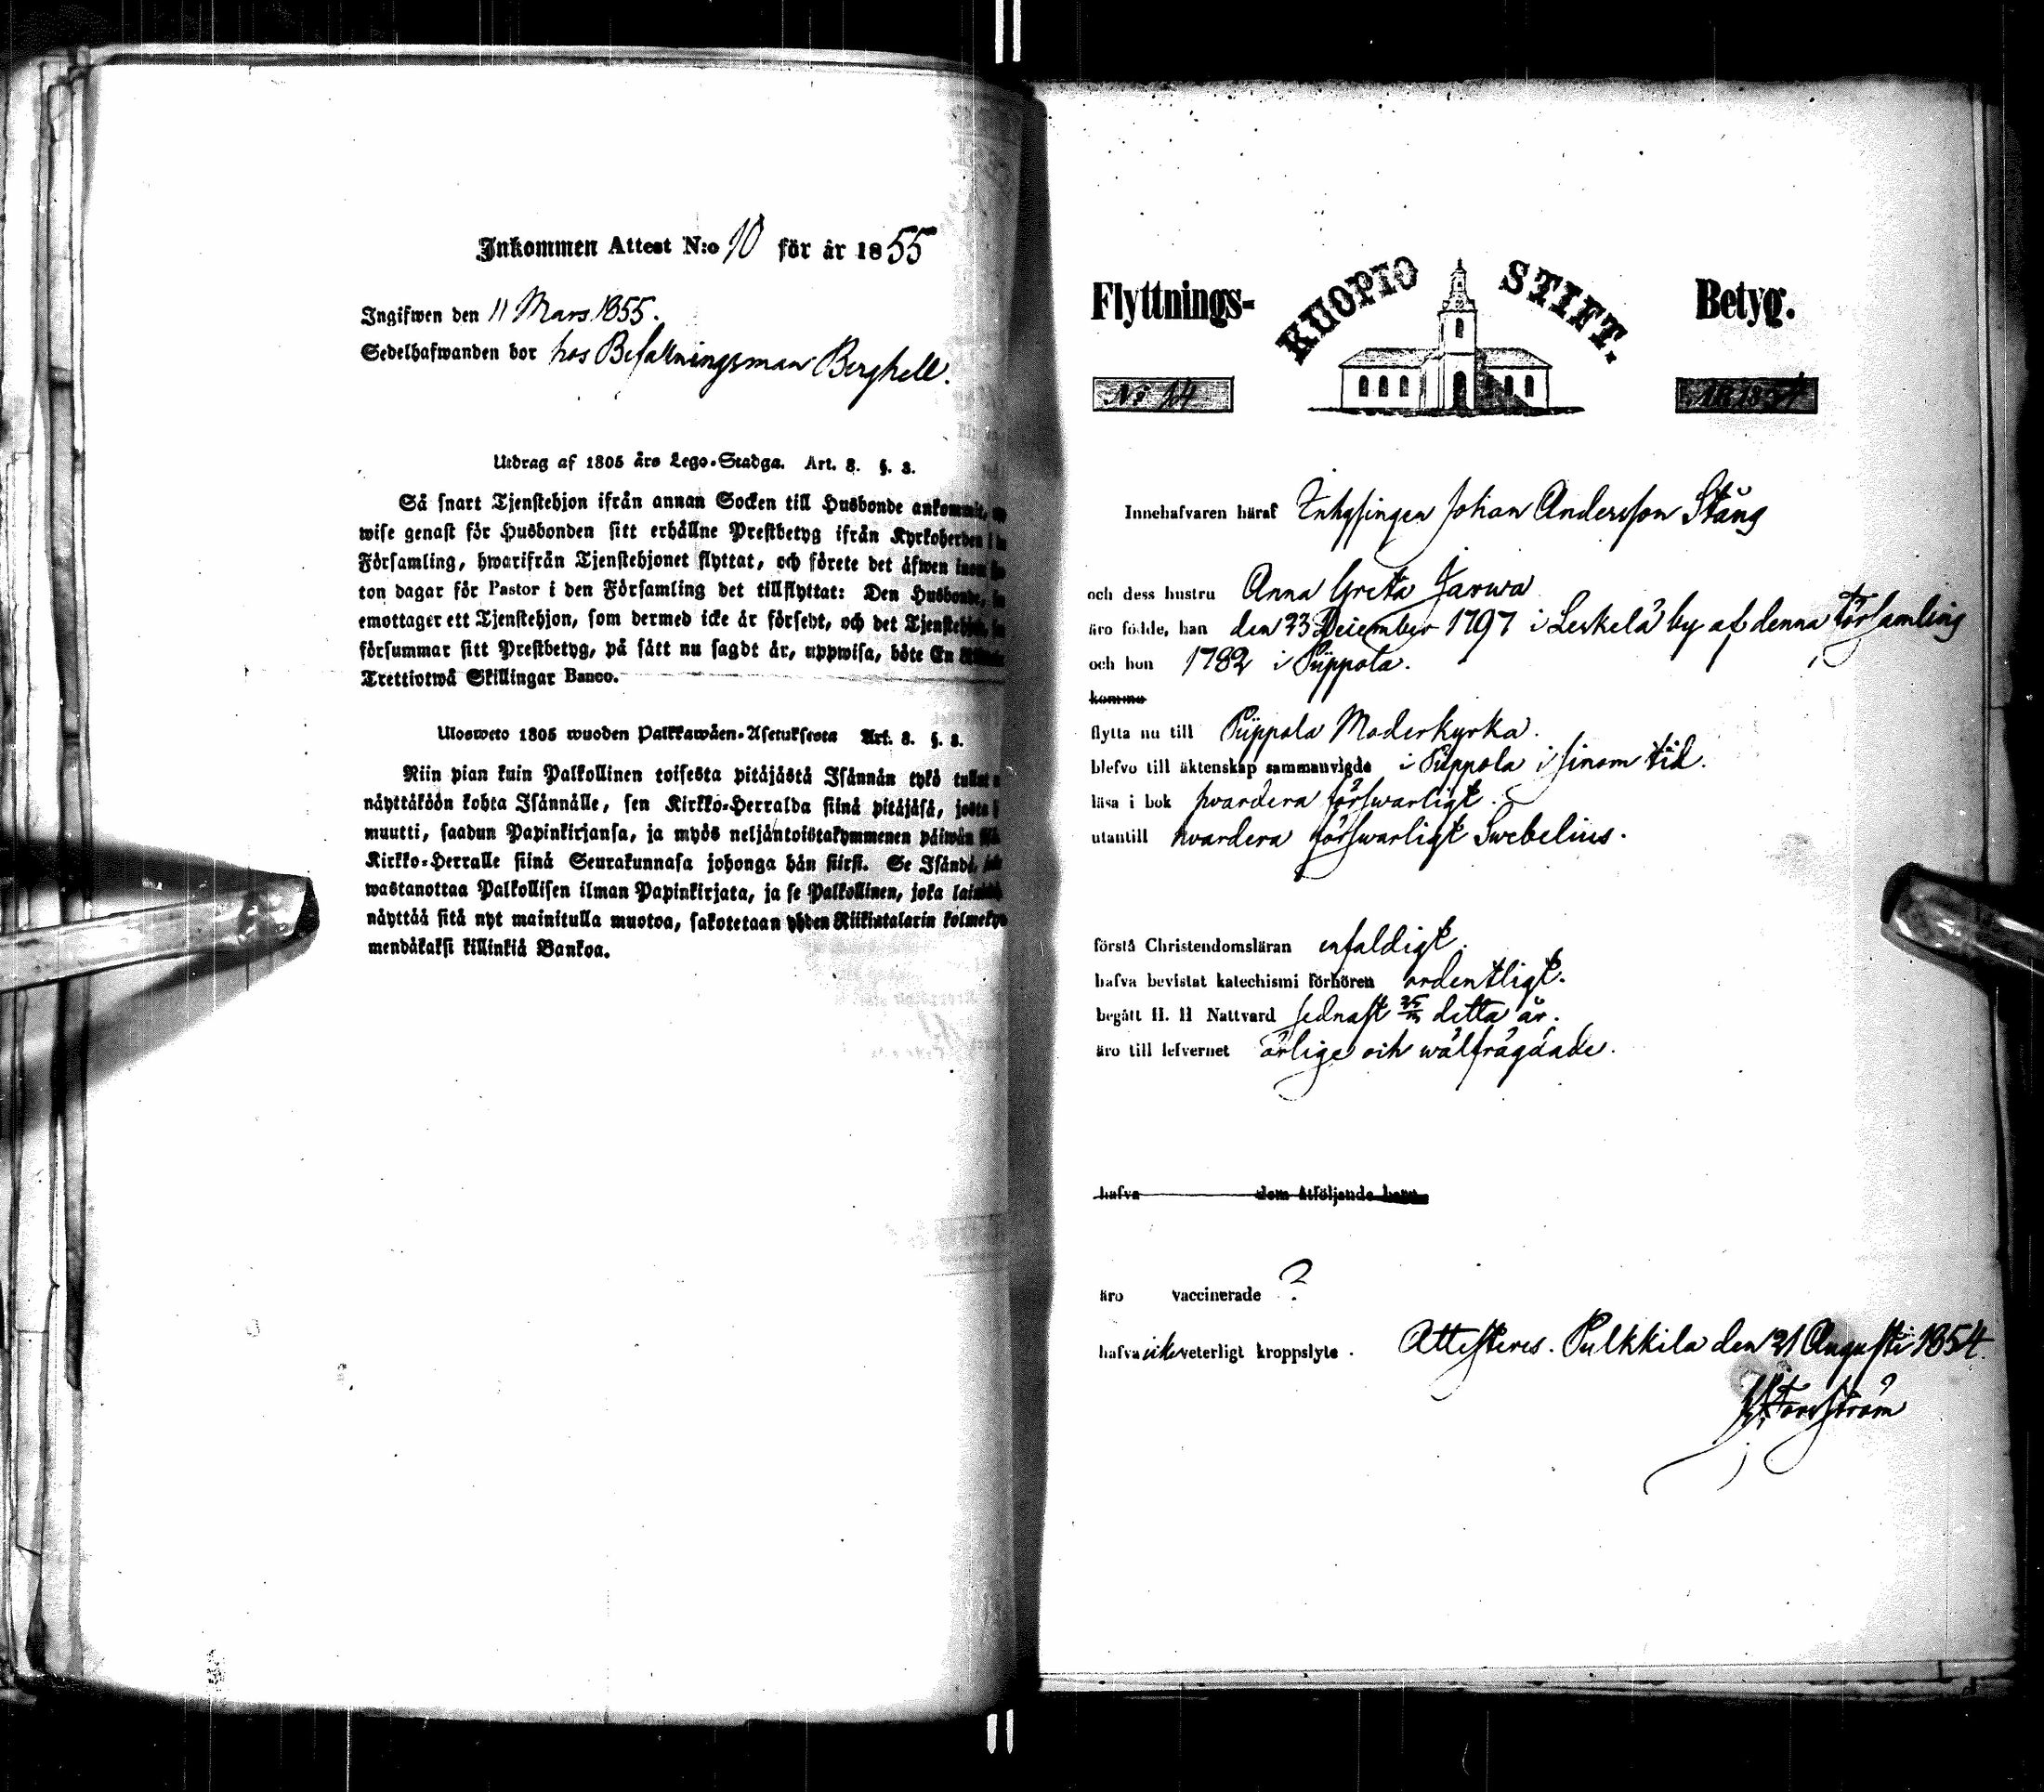 Inkommen Attest N:o 10 för år 1855
Ingifwen den 11 Mars 1855.
Sedelhafwanden bor hos Befallningsman Berghell.
Utdrag af 1805 års Lego-Stadga. Art. 8. §. 8.
Så snart Tjenstehjon ifrån annan Socken till Husbonde ankommit,
wise genast för Husbonden sitt erhållne Prestbetyg ifrån Kyrkoherden i
Församling, hwarifrån Tjenstehjonet flyttat, och förete det äfwen inom
ton dagar för Pastor i den Församling det tillflyttat: Den Husbonde,
emottager ett Tjenstehjon, som dermed icke är försedt, och det Tjenstehjon,
försummar sitt Prestbetyg, på sätt nu sagdt är, uppwisa, böte En
Trettiotwå Skillingar Banco.
Ulosweto 1805 wuoden Palkkawäen-Asetuksesta Art. 8. §. 8.
Niin pian kuin Palkollinen toisesta pitäjästä Isännän tykö tullut
näyttäköön kohta Isännälle, sen Kirkko-Herralda siinä pitäjäsä, josta
muutti, saadun Papinkirjansa, ja myös neljäntoistakymmenen päiwän
Kirkko-Herralle siinä Seurakunnasa johonga hän siirsi. Se Isändä,
wastanottaa Palkollisen ilman Papinkirjata, ja se Palkollinen, joka
näyttää sitä nyt mainitulla muotoa, sakotetaan yhden Riikintalarin kolmeky
mendäkaksi killinkiä Bankoa.
Flyttnings- KUOPIO STIFT. Betyg.
No 14 ÅR 1854
Innehafvaren häraf Inhysingen Johan Andersson Stång
och dess hustru Anna Greta Jarwa
äro födde, han den 23 December 1797 i Leskelä by af denna församling
och hon 1782 i Piippola.
komma
flytta nu till Piippola Moderkyrka.
blefvo till äktenskap sammanvigde i Piippola i sinom tid.
läsa i bok hvardera försvarligt.
utantill hvardera försvarligt Swebelius.
förstå Christendomsläran enfaldigt.
hafva bevistat katechismi förhören ordentligt.
begått H. H Nattvard sednast detta år.
äro till lefvernet ärlige och wälfrägdade.
hafva dem åtföljande barn
äro vaccinerade ?
hafva icke veterligt kroppslyte. Attesteres. Pulkkila den 21 Augusti 1854.